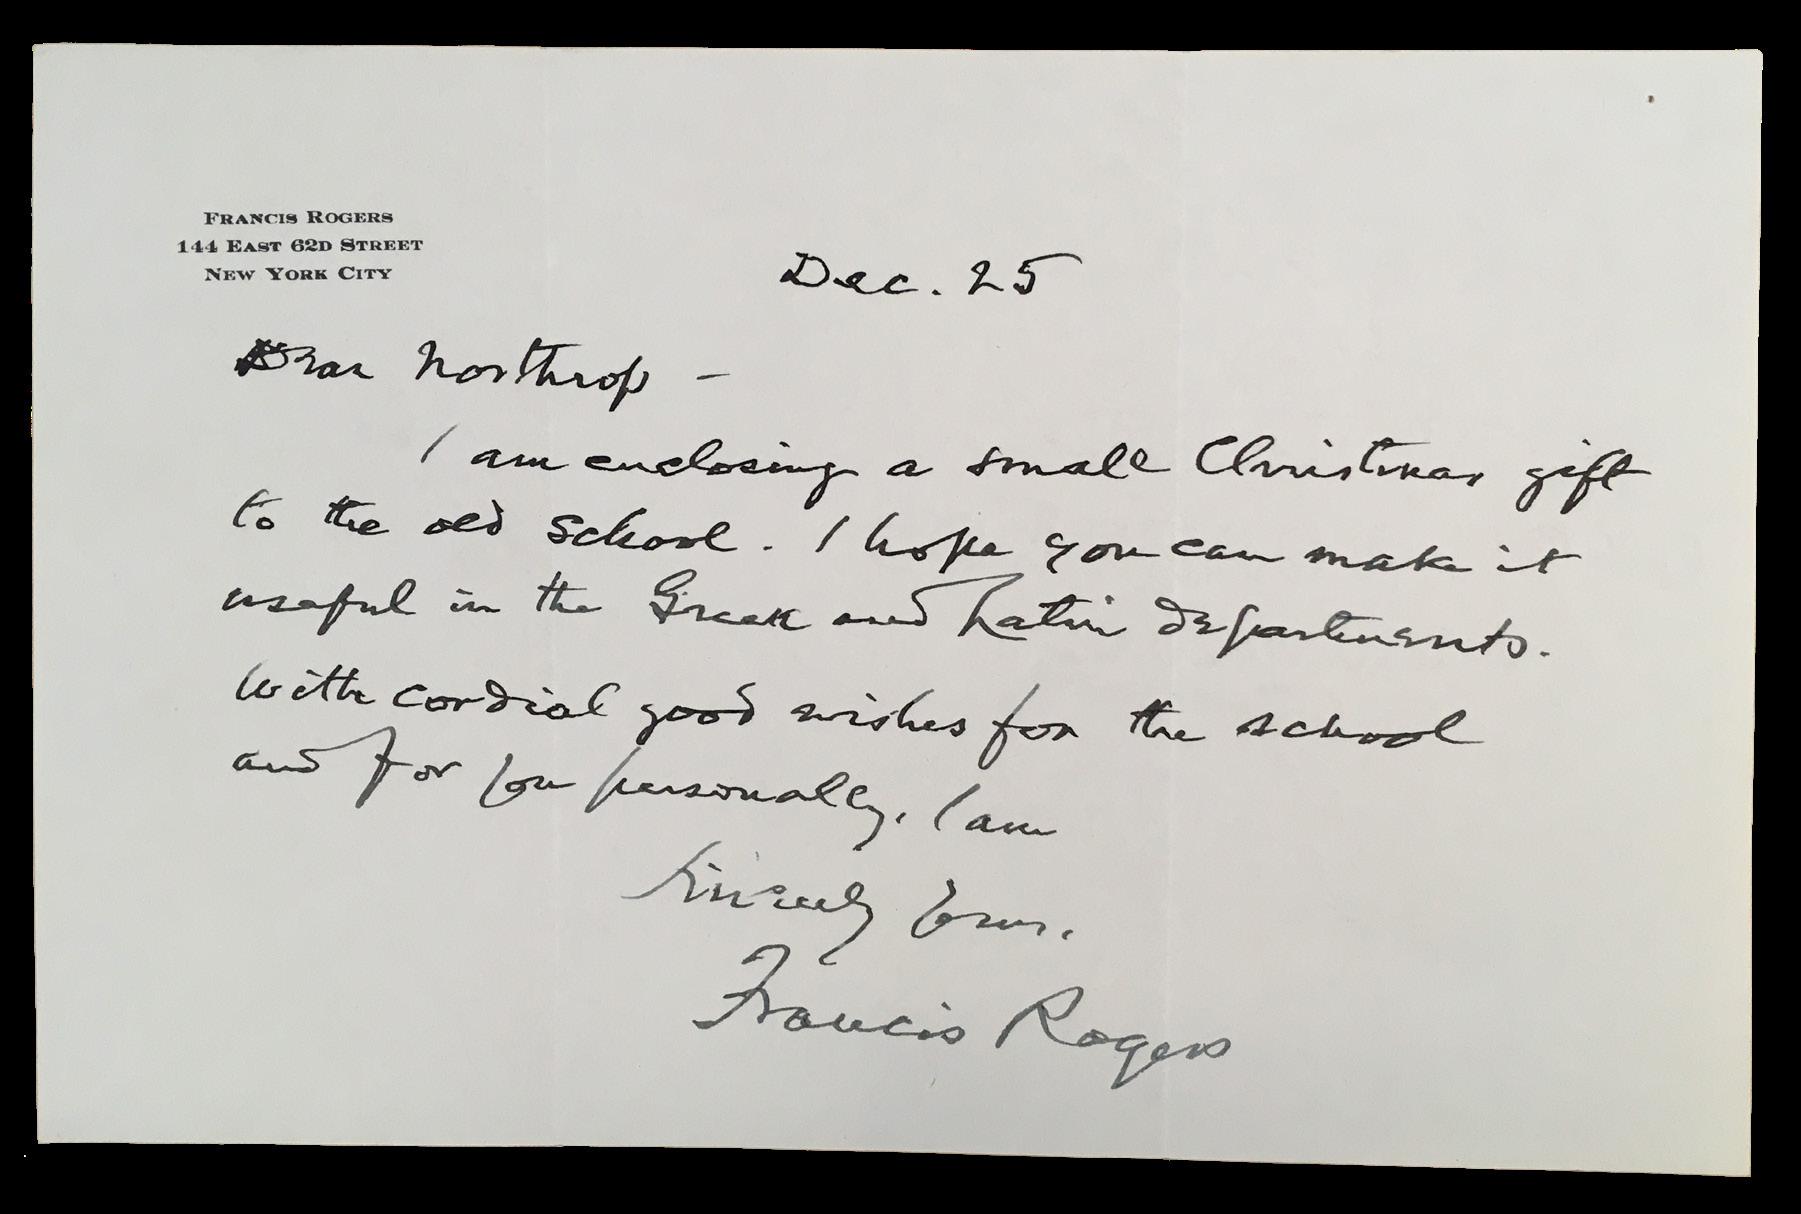 FRANCIS ROGERS
144 EAST 62D STREET
NEW YORK CITY
Dec. 25
Dear Northrop –
I am enclosing a small Christmas gift
to the old school. I hope you can make it
useful in the Greek and Latin departments.
With cordial good wishes for the school
and for you personally, I am
Sincerely Yours,
Francis Rogers